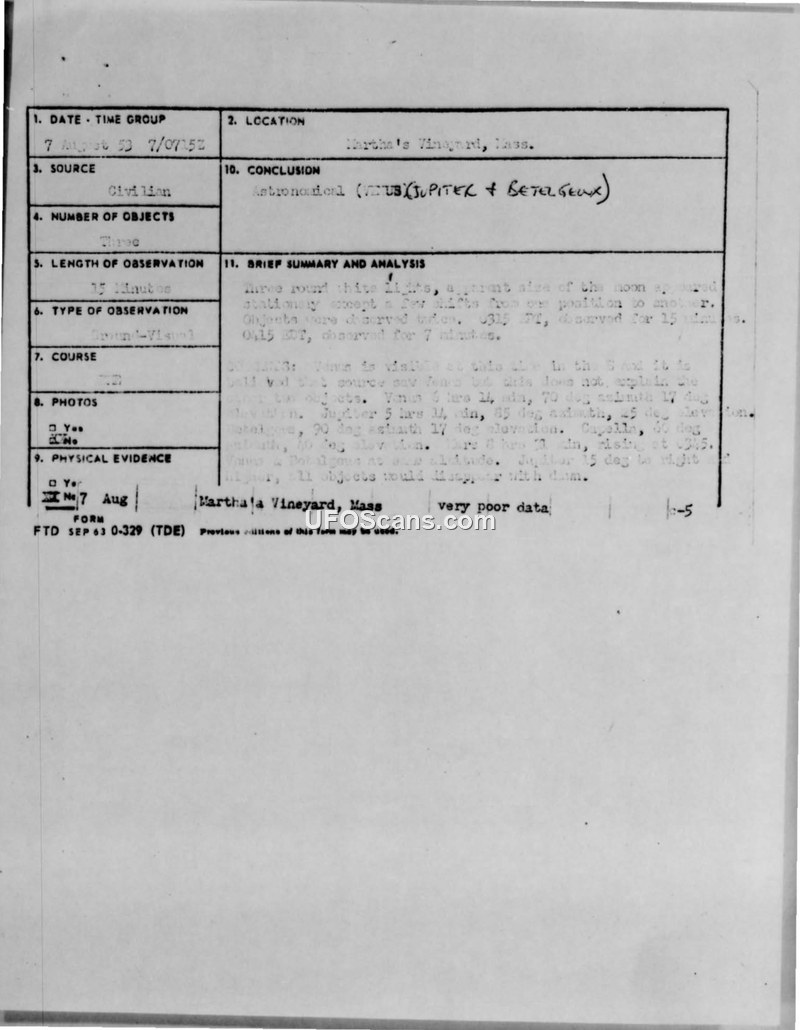 1. DATE - TIME GROUP
7 August 53 7/0715Z
2. LOCATION
Martha's Vineyard, Mass.
3. SOURCE
Civilian
10. CONCLUSION
Astronomical (VENUS)(JUPITER + BETELGEUX)
4. NUMBER OF OBJECTS
Three
5. LENGTH OF OBSERVATION
15 Minutes
11. BRIEF SUMMARY AND ANALYSIS
Three round white lights, apparent size of the moon appeared
stationary except a few shifts from one position to another.
Objects were observed twice. 0315 EDT, observed for 15 minutes.
0415 EDT, observed for 7 minutes.
6. TYPE OF OBSERVATION
Ground-Visual
7. COURSE
NE
Venus is visible at this time in the E and it is
believed that source saw Venus but this does not explain the
other two objects. Venus 6 hrs 14 min, 70 deg azimuth 17 deg
elevation. Jupiter 5 hrs 14 min, 85 deg azimuth, 25 deg elevation.
Betelgeux, 90 deg azimuth 17 deg elevation. Capella, deg
azimuth, deg elevation. Mars 8 hrs min, rising at 0345.
Venus & Betelgeux at same altitude. Jupiter 15 deg to right and
higher, all objects would disappear with dawn.
8. PHOTOS
□ Yes
No
9. PHYSICAL EVIDENCE
□ Yes
No
7 Aug Martha's Vineyard, Mass very poor data -5
UFOScans.com
FORM
FTD SEP 63 0-329 (TDE) Previous editions of this form may be used.